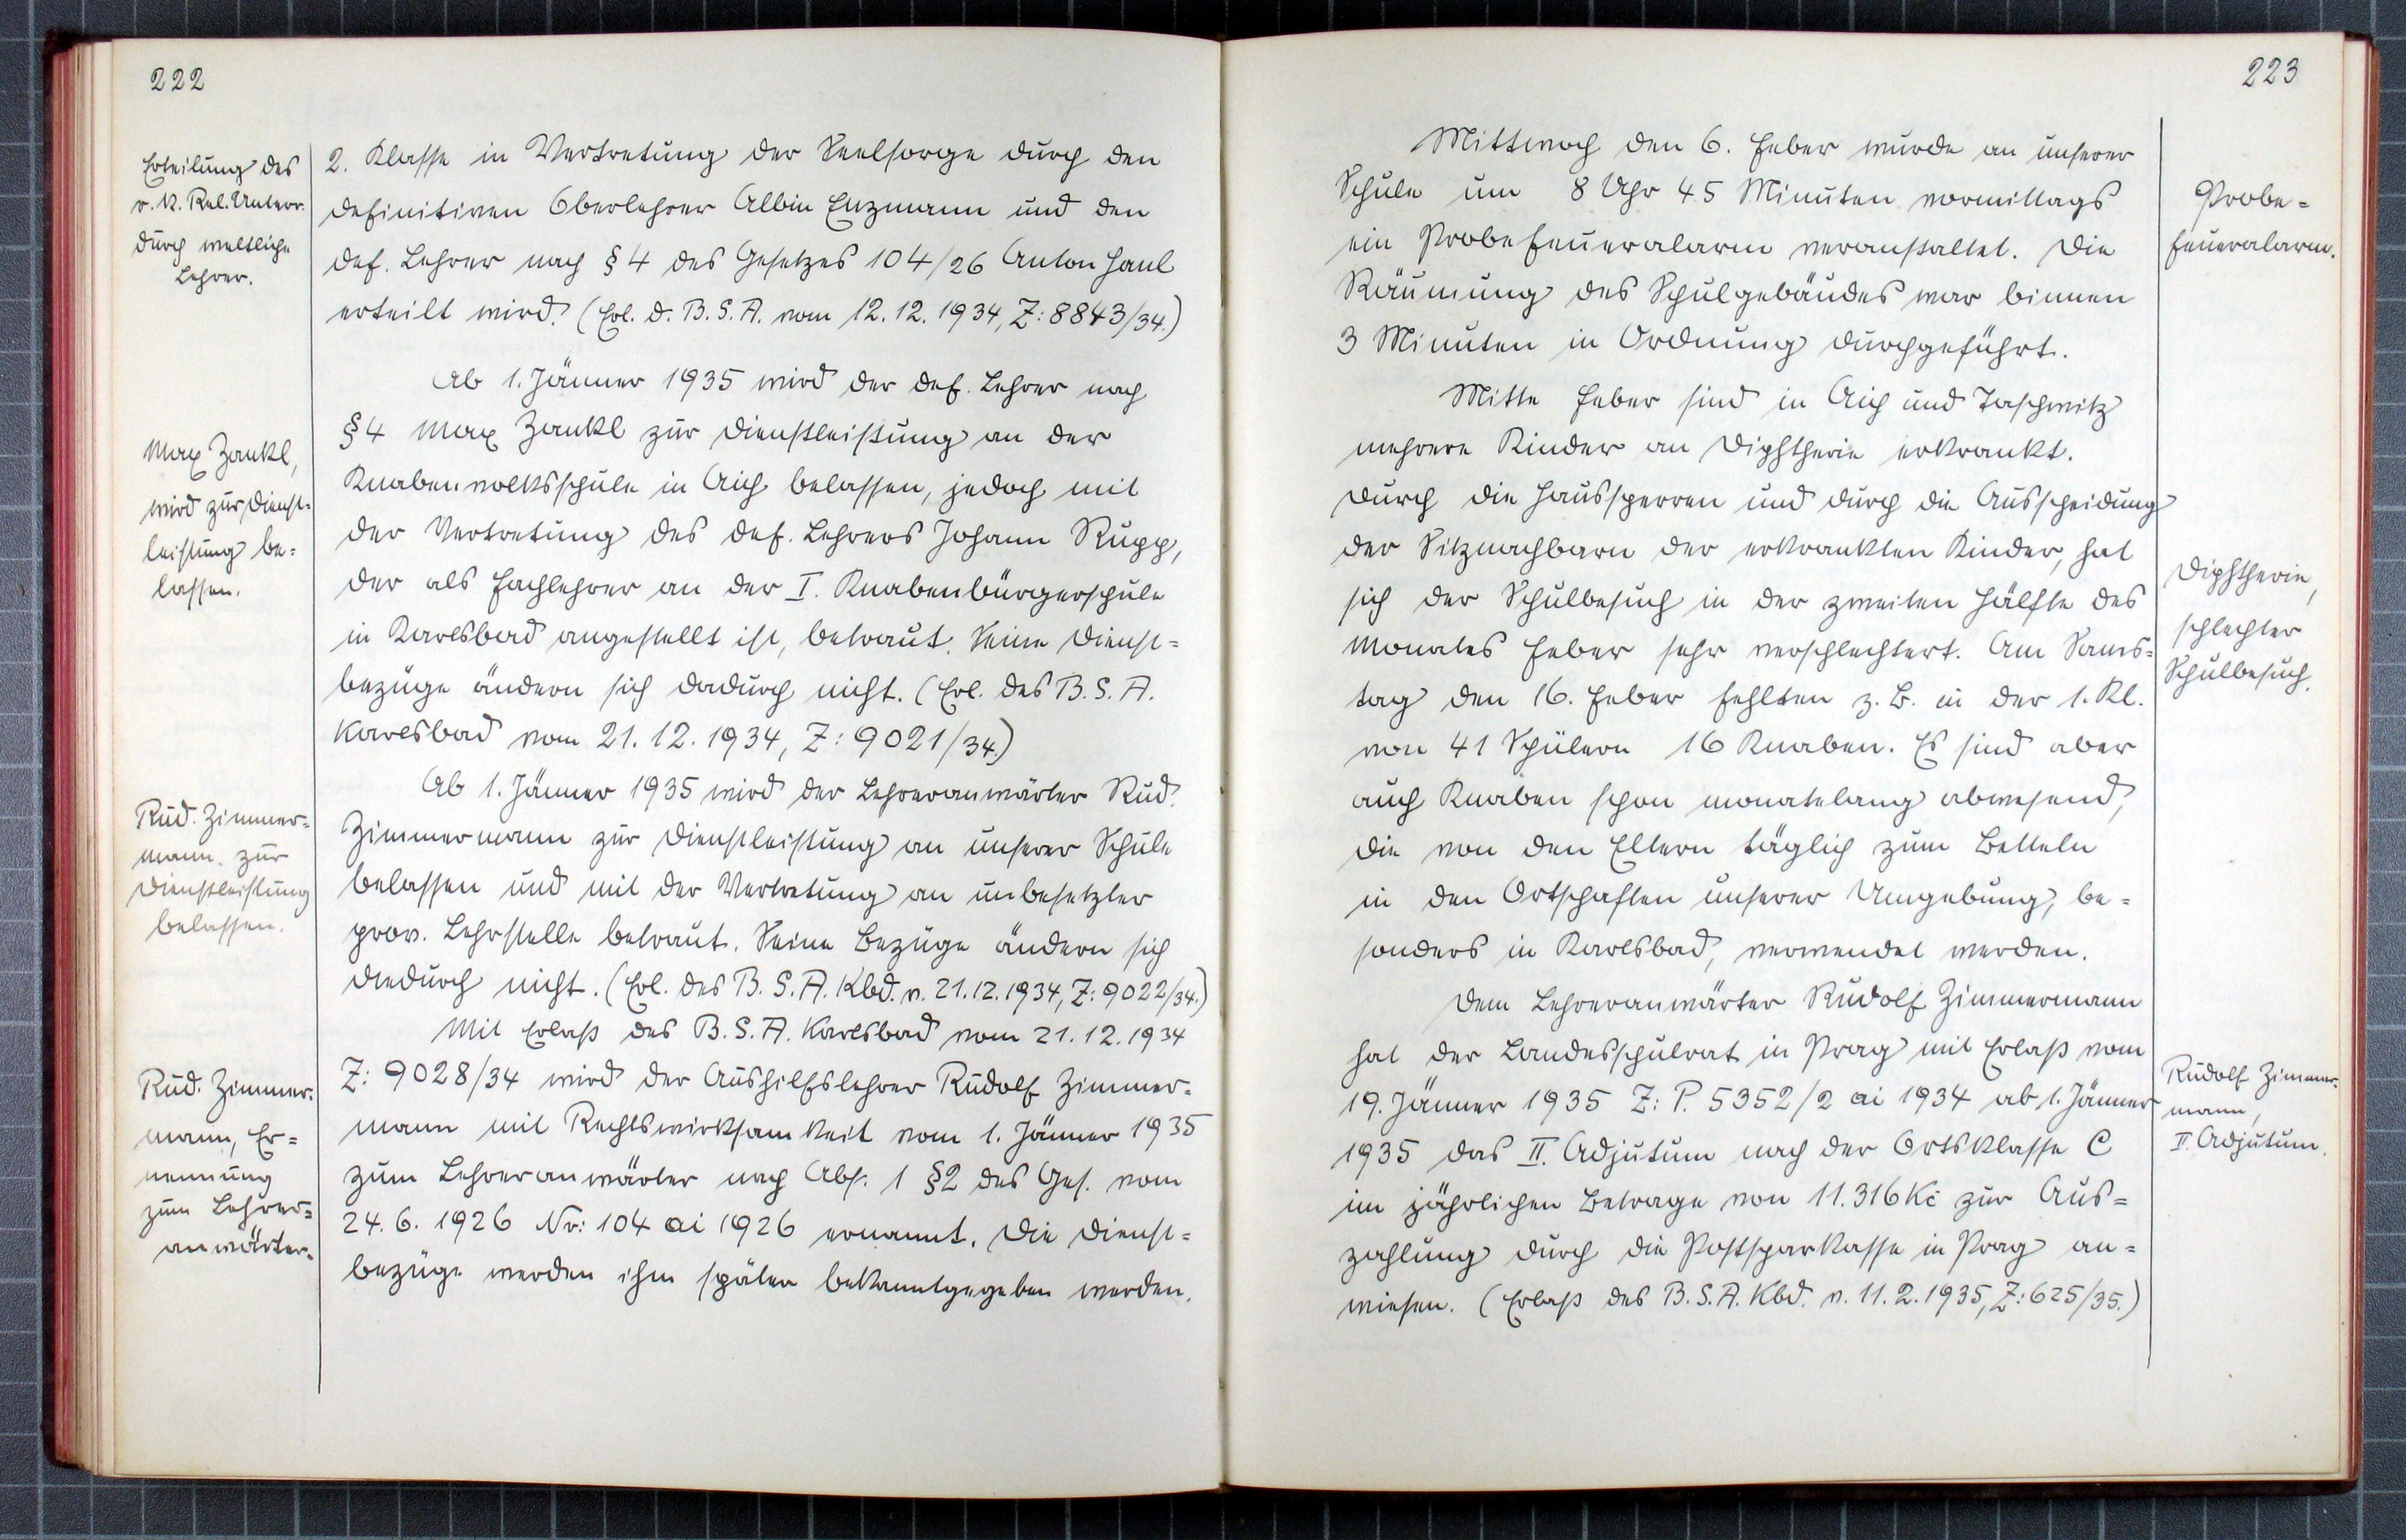 222
Erteilung des
r. k. Rel. Unterr.
durch weltliche
Lehrer.
2. Klasse in Vertretung der Seelsorge durch den
definitiven Oberlehrer Albin Enzmann und den
def. Lehrer nach § 4 des Gesetzes 104/26 Anton Hanl
erteilt wird. (Erl. d. B. S. A. vom 12. 12. 1934, Z: 8843/34.)
Ab 1. Jänner 1935 wird der def. Lehrer nach
§ 4 Max Zankl zur Dienstleistung an der
Knabenvolksschule in Aich belassen, jedoch mit
der Vertretung des def. Lehrers Johann Rupp,
der als Fachlehrer an der I. Knabenbürgerschule
in Karlsbad angestellt ist, betraut. Seine Dienst=
bezüge ändern sich dadurch nicht. (Erl. des B. S. A.
Karlsbad vom 21. 12. 1934, Z: 9021/34.)
Max Zankl,
wird zur Dienst-
leistung be=
lassen.
Ab 1. Jänner 1935 wird der Lehreranwärter Rud.
Zimmermann zur Dienstleistung an unserer Schule
belassen und mit der Vertretung an unbesetzter
prov. Lehrstelle betraut. Seine Bezüge ändern sich
diedurch nicht. (Erl. des B. S. A. Kbd. v. 21. 12. 1934, Z: 9022/34.)
Rud. Zimmer=
mann, zur
Dienstleistung
belassen.
Mit Erlaß des B. S. A. Karlsbad vom 21. 12. 1934
Z: 9028/34 wird der Aushilfslehrer Rudolf Zimmer=
mann mit Rechtswirksamkeit vom 1. Jänner 1935
zum Lehreranwärter nach Abs. 1 § 2 des Ges. vom
24. 6. 1926 Nr: 104 ai 1926 ernannt. Die Dienst=
bezüge werden ihm später bekanntgegeben werden.
Rud. Zimmer=
mann, Er=
nennung
zum Lehrer=
anwärter.
223
Mittwoch den 6. Feber wurde an unserer
Schule um 8 Uhr 45 Minuten vormittags
ein Probefeueralarm veranstaltet. Die
Räumung des Schulgebäudes war binnen
3 Minuten in Ordnung durchgeführt.
Probe=
feueralarm.
Mitte Feber sind in Aich und Taschwitz
mehrere Kinder an Diphtherie erkrankt.
Durch die Haussperren und durch die Ausscheidung
der Sitznachbarn der erkrankten Kinder, hat
sich der Schulbesuch in der zweiten Hälfte des
Monates Feber sehr verschlechtert. Am Sams=
tag den 16. Feber fehlten z. B. in der 1. Kl.
von 41 Schülern 16 Knaben. Es sind aber
auch Knaben schon monatelang abwesend,
die von den Eltern täglich zum Betteln
in den Ortschaften unserer Umgebung, be=
sonders in Karlsbad, verwendet werden.
Diphtherie,
schlechter
Schulbesuch.
Dem Lehreranwärter Rudolf Zimmermann
hat der Landesschulrat in Prag mit Erlaß vom
19. Jänner 1935 Z: P. 5352/2 ai 1934 ab 1. Jänner
1935 das II. Adjutum nach der Ortsklasse C
im jährlichen Betrage von 11.316 Kč zur Aus=
zahlung durch die Postsparkasse in Prag an=
wiesen. (Erlaß des B. S. A. Kbd. v. 11. 2. 1935, Z: 625/35.)
Rudolf Zimmer-
mann,
II. Adjutum.